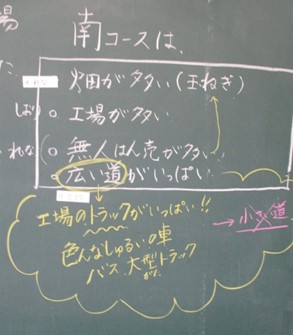 場
南コースは、
た
きれな
・畑が多い(玉ねぎ)
しばり 。工場が多い
いれな 。無人はん売が多い
。広い道がいっぱい
工場のトラックがいっぱい!!
→小さい道
色んなしゅるいの車
バス、大型トラック
がた